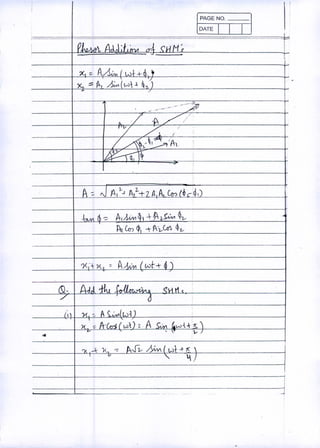 PAGE NO.
DATE
Phasor Addition of SHM's
x₁ = A₁ Sin (wt + ϕ₁)
x₂ = A₂ Sin (wt + ϕ₂)
A₂ A
A₁
ϕ
A = √A₁² + A₂² + 2A₁A₂ Cos (ϕ₂-ϕ₁)
tan ϕ = A₁ Sin ϕ₁ + A₂ Sin ϕ₂
A₁ Cos ϕ₁ + A₂ Cos ϕ₂
x₁ + x₂ = A sin (wt + ϕ)
Q. Add the following SHMs.
(1) x₁ = A Sin(wt)
x₂ = A Cos (wt) = A Sin (wt + π/2)
x₁ + x₂ = A√2 Sin (wt + π/4)